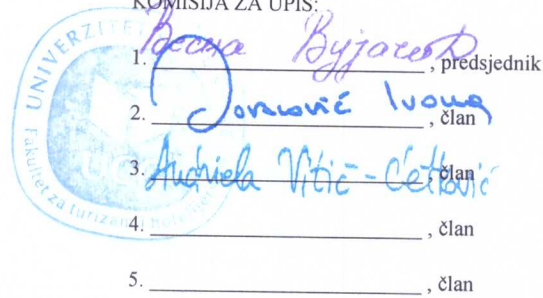 KOMISIJA ZA UPIS:
1. Весна Вујачић, predsjednik
2. Jovanović Ivona, član
3. Andriela Vitić-Ćetković, član
4. ____________, član
5. ____________, član
UNIVERZITET
Fakultet za turizam i hotel